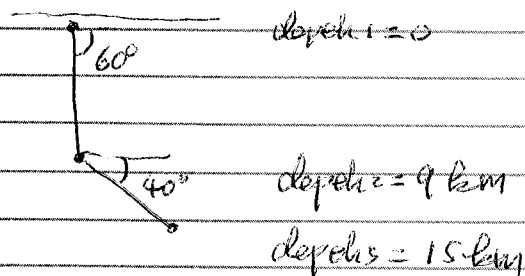 depth1 = 0
60°
40°
depth2 = 9 km
depth3 = 15 km